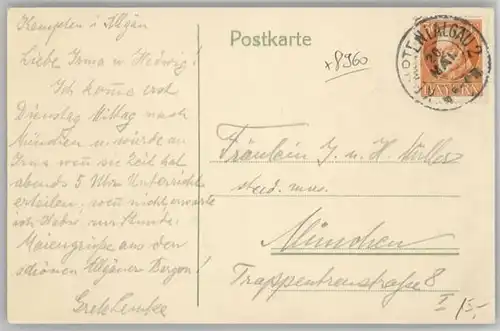 Kempten i Allgäu
Liebe Irma u Hedwig!
Ich komme erst
Dienstag Mittag nach
München u würde an
Irma wenn sie Zeit hat
abends 5 Uhr Unterricht
erteilen, wenn nicht, erwarte
ich Hedw. zur Stunde.
Maiengrüße aus den
schönen Allgäuer Bergen!
Grete Lemke
Postkarte
x8960
ALLGÄU 2
MAI
BAYERN
Fräulein J. u. H. Müller
stud. mus.
München
Trappentreustraße 8
I
15,-